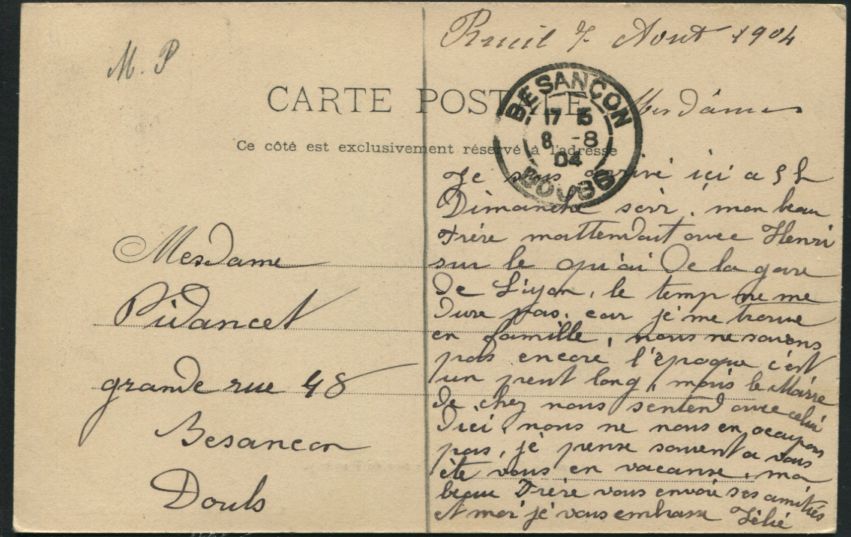 M. P
CARTE POSTALE
Ce côté est exclusivement réservé à l'adresse
BESANÇON
17 15
8 -8
04
DOUBS
Mesdame
Pidancet
grande rue 48
Besancon
Doubs
Rueil 7 Aout 1904
Mesdâmes
Je suis arrivé içi a 5 h
Dimanche soir, mon beau
Frére mattendait avec Henri
sur le quai De la gare
de Liyon, le temp ne me
Dure pas, car je me trouve
en famille, nous ne savons
pas encore l'époque c'est
un peut long, mais le Maire
de chez nous sentend avec celui
D'ici, nous ne nous en ocupons
pas, je pense souvent a vous
éte vous en vacanse, mon
beau Frére vous envoie ses amitiés
Et moi je vous embrasse Zélié